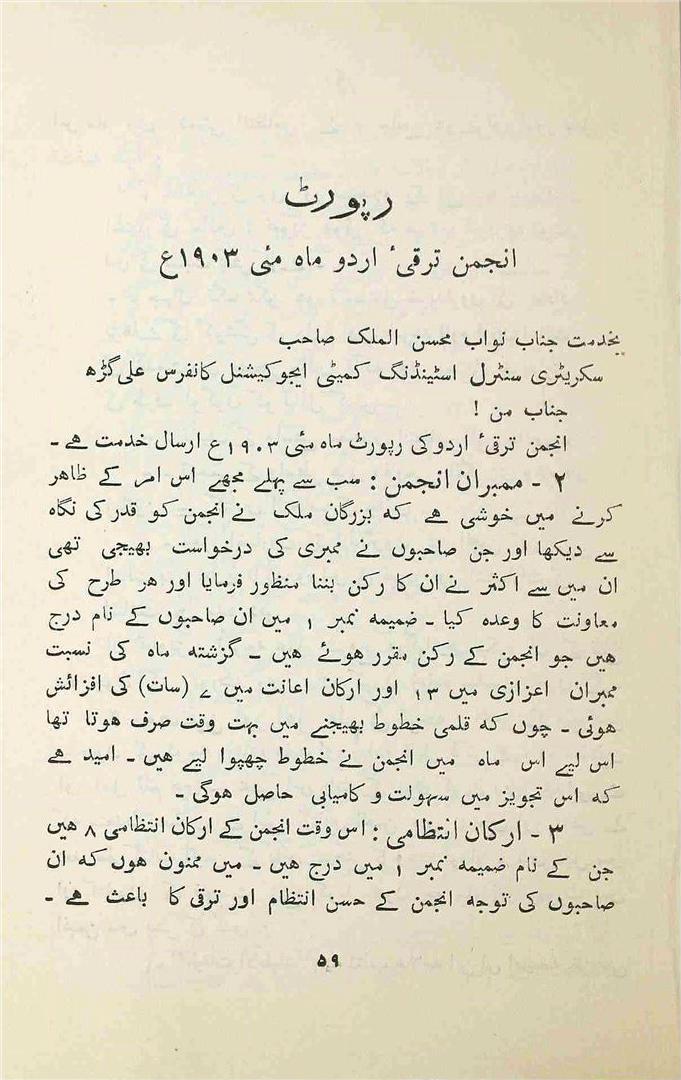 رپورٹ
انجمن ترقیٔ اردو ماہ مئی ۱۹۰۳ع
بخدمت جناب نواب محسن الملک صاحب
سکریٹری سنٹرل اسٹینڈنگ کمیٹی ایجوکیشنل کانفرس علی گڑھ
جناب من !
انجمن ترقیٔ اردو کی رپورٹ ماہ مئی ۱۹۰۳ع ارسال خدمت ہے ۔
۲ ۔ ممبران انجمن : سب سے پہلے مجھے اس امر کے ظاہر
کرنے میں خوشی ہے کہ بزرگان ملک نے انجمن کو قدر کی نگاہ
سے دیکھا اور جن صاحبوں نے ممبری کی درخواست بھیجی تھی
ان میں سے اکثر نے ان کا رکن بننا منظور فرمایا اور ہر طرح کی
معاونت کا وعدہ کیا ۔ ضمیمہ نمبر ۱ میں ان صاحبوں کے نام درج
ہیں جو انجمن کے رکن مقرر ہوئے ہیں ۔ گزشتہ ماہ کی نسبت
ممبران اعزازی میں ۱۳ اور ارکان اعانت میں ۷ (سات) کی افزائش
ہوئی ۔ چوں کہ قلمی خطوط بھیجنے میں بہت وقت صرف ہوتا تھا
اس لیے اس ماہ میں انجمن نے خطوط چھپوا لیے ہیں ۔ امید ہے
کہ اس تجویز میں سہولت و کامیابی حاصل ہوگی ۔
۳ ۔ ارکان انتظامی : اس وقت انجمن کے ارکان انتظامی ۸ ہیں
جن کے نام ضمیمہ نمبر ۱ میں درج ہیں ۔ میں ممنون ہوں کہ ان
صاحبوں کی توجہ انجمن کے حسن انتظام اور ترقی کا باعث ہے ۔
۵۹